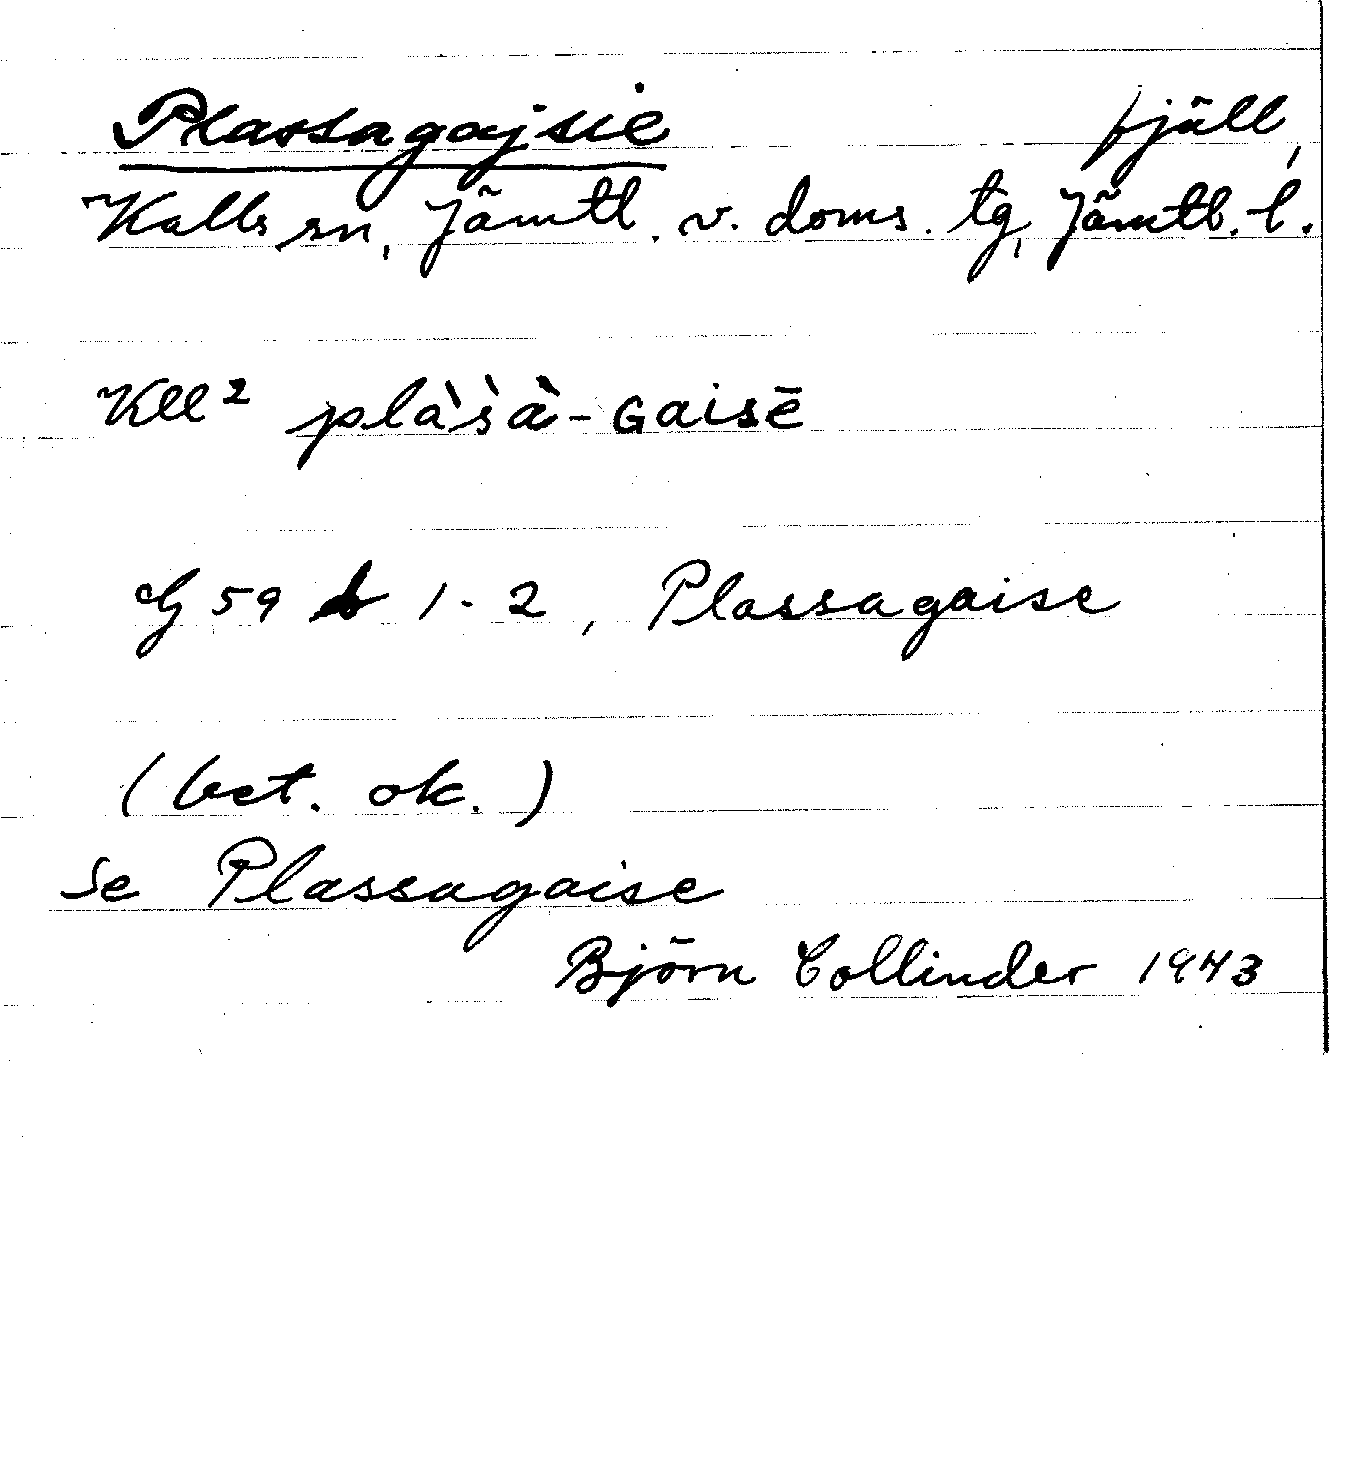 Plassagajsie fjäll,
Kalls sn, Jämtl. v. doms. tg, Jämtl. l.
Kll² plàs̀à-Gaisē
G 59 b 1-2, Plassagaise
(bet. ok.)
se Plassagaise
Björn Collinder 1943